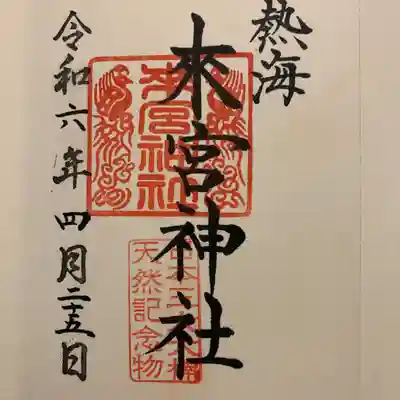 熱海
來宮神社
來宮神社
天然記念物
令和六年四月二十五日